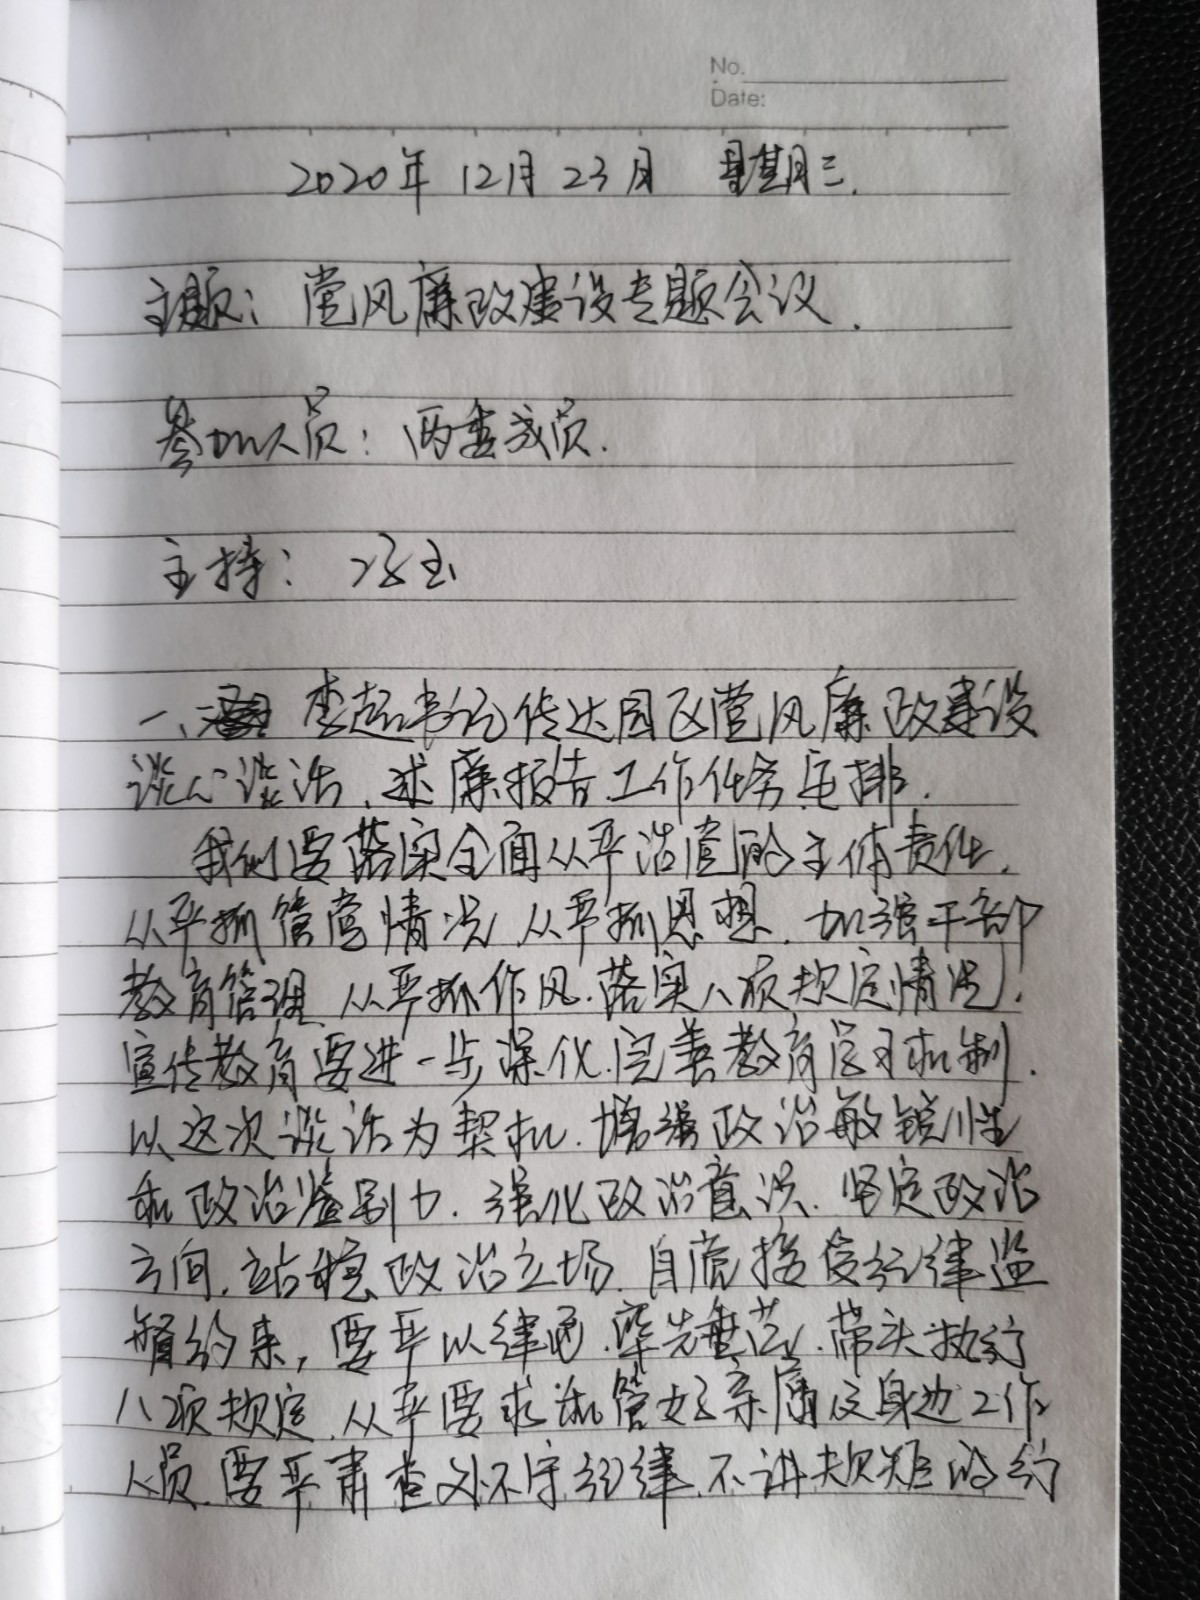 No.
Date:
2020年12月23日 星期三.
主题：党风廉政建设专题会议.
参加人员：两委成员.
主持：冯玉
一、李超书记传达园区党风廉政建设
谈心谈话、述廉报告工作任务安排.
我们要落实全面从严治党的主体责任.
从严抓管党情况.从严抓思想.加强干部
教育管理.从严抓作风.落实八项规定情况.
宣传教育要进一步深化.完善教育学习机制.
以这次谈话为契机.增强政治敏锐性
和政治鉴别力.强化政治意识.坚定政治
方向.站稳政治立场.自觉接受纪律监
督约束，要严以律己.率先垂范.带头执行
八项规定.从严要求和管好亲属及身边工作
人员.要严肃查处不守纪律.不讲规矩的行